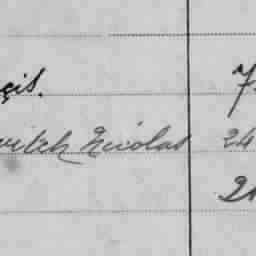 çis. 7
witch Nicolas 24
2